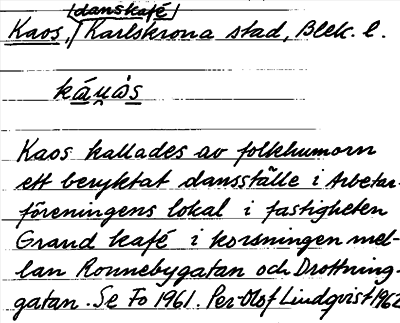 danskafé
Kaos, Karlskrona stad, Blek. l.
káu̯ȧs
Kaos kallades av folkhumorn
ett beryktat dansställe i Arbetar-
föreningens lokal i fastigheten
Grand kafé i korsningen mel-
lan Ronnebygatan och Drottning-
gatan. Se Fo 1961. Per-Olof Lindqvist 1962